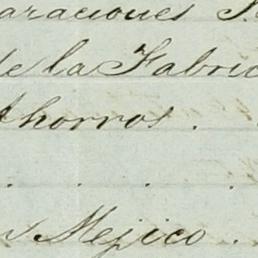 araciones
de la Fabric
Ahorros .
. . . .
Mejico .